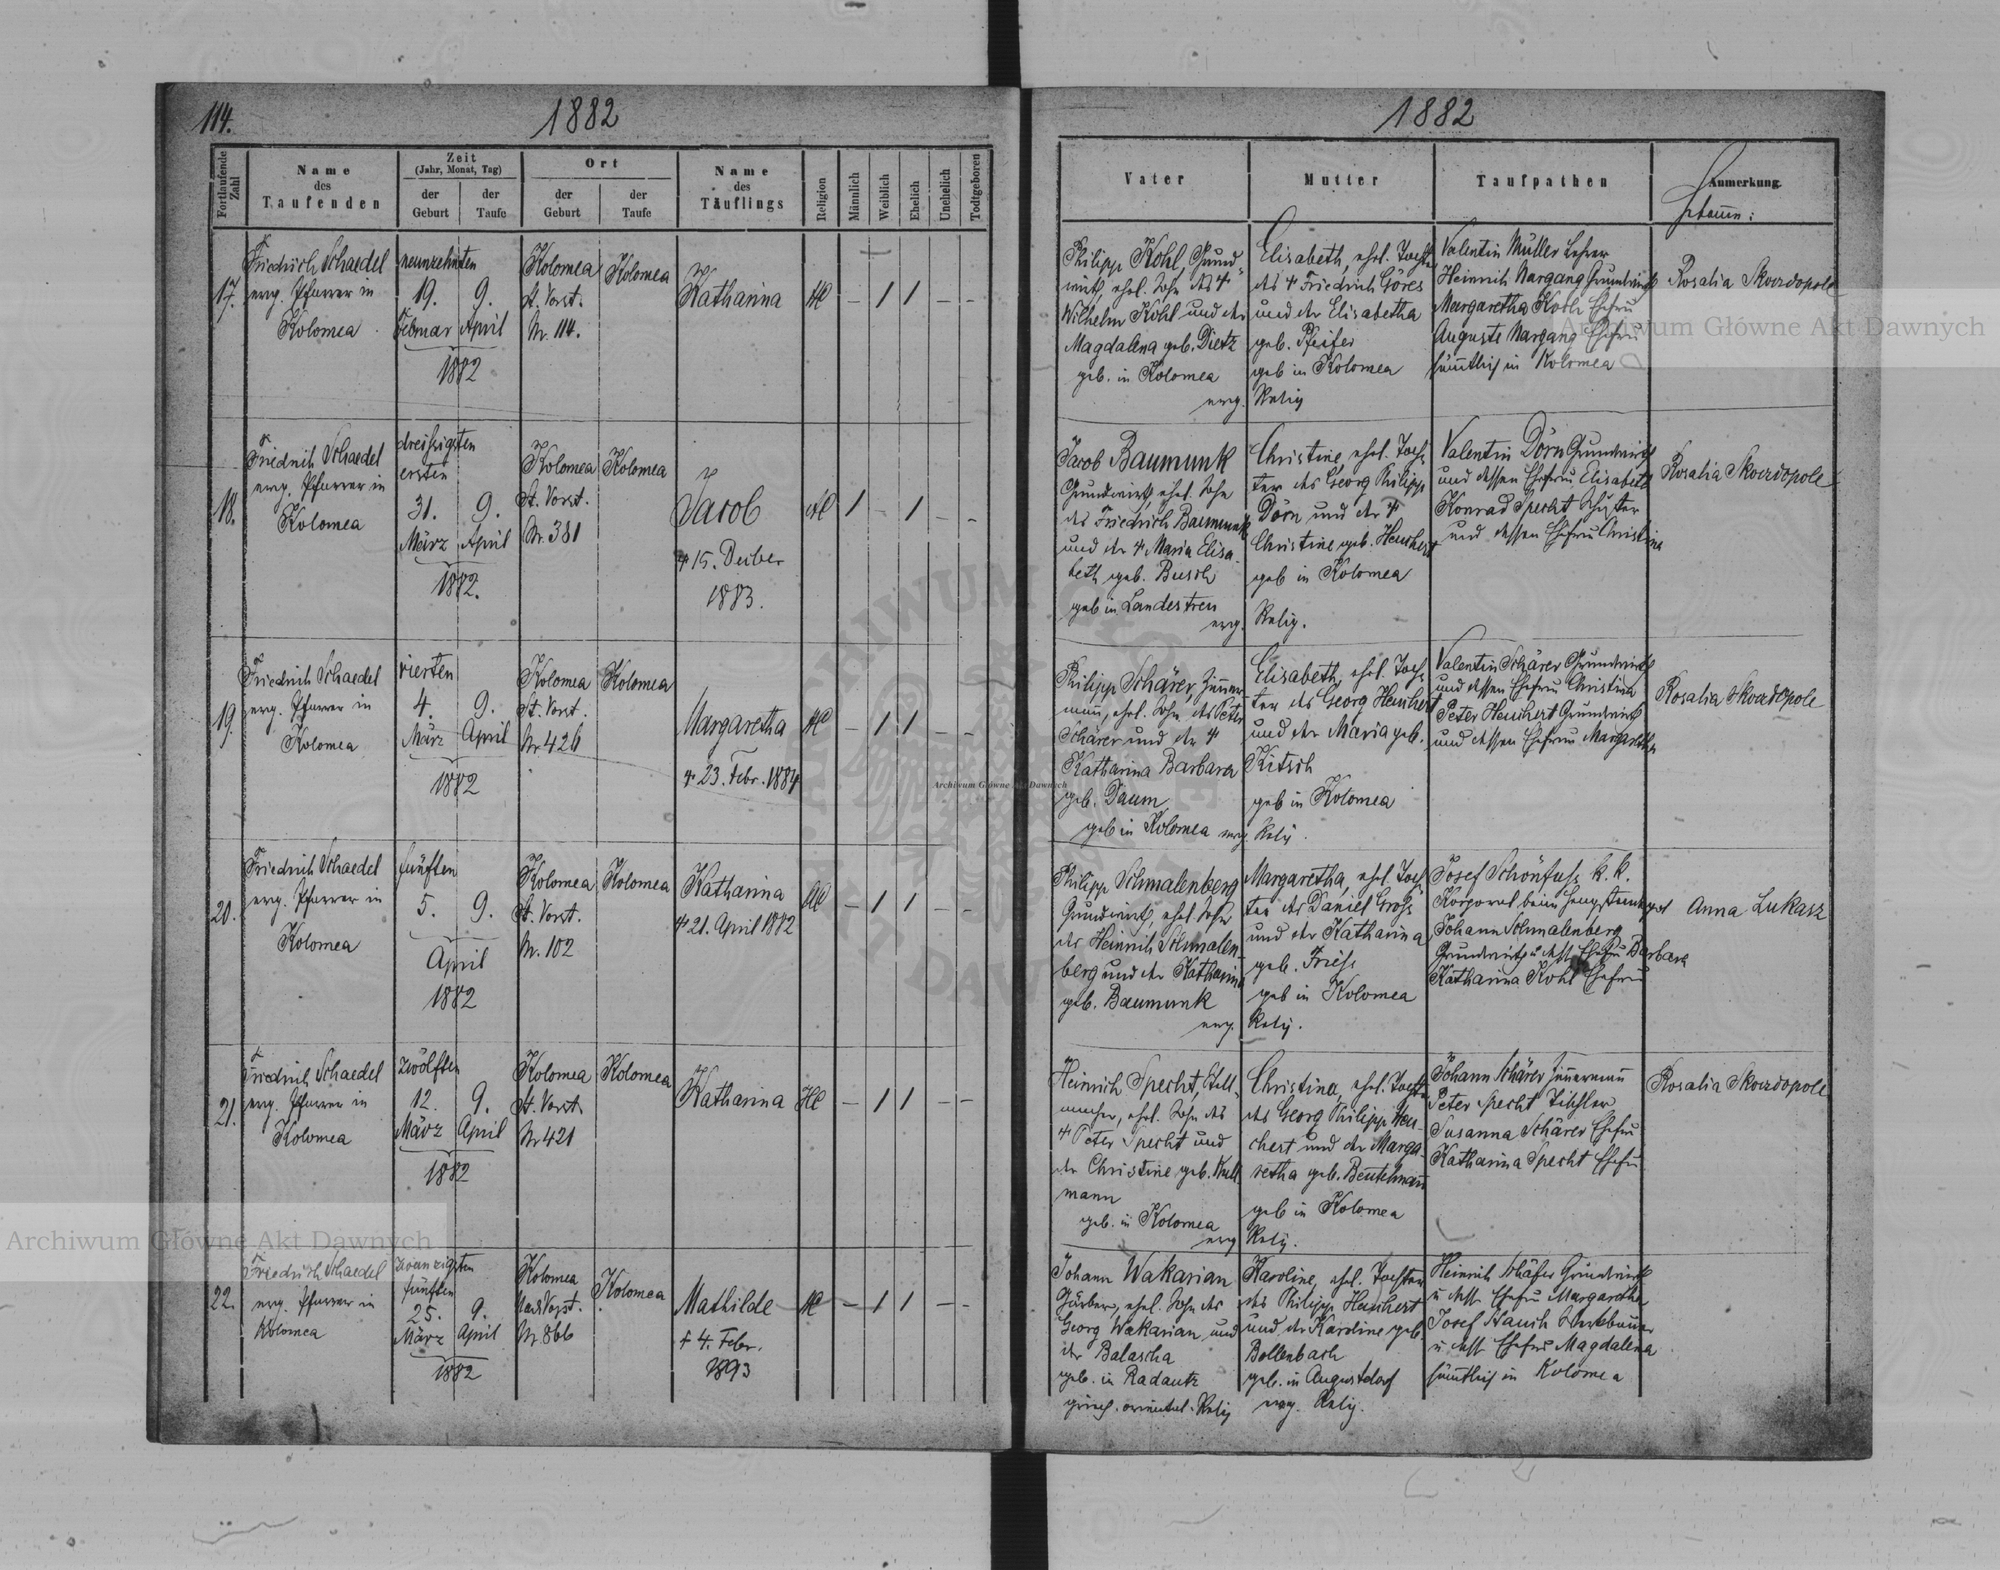 114.
1882
Fortlaufende Zahl
Name des Taufenden
Zeit
(Jahr, Monat, Tag)
der Geburt
der Taufe
Ort
der Geburt
der Taufe
Name des Täuflings
Religion
Männlich
Weiblich
Ehelich
Unehelich
Todtgeboren
17.
Friedrich Schaedel
evg. Pfarrer in
Kolomea
neunzehnten
19. 9.
Februar April
1882
Kolomea
St. Vorst.
Nr. 114.
Kolomea
Katharina
– 1 1 – –
18.
Friedrich Schaedel
evg. Pfarrer in
Kolomea
dreißigsten
ersten
31. 9.
März April
1882.
Kolomea
St. Vorst.
Nr. 381
Kolomea
Jacob
15. Dezber
1883.
1 – 1 – –
19.
Friedrich Schaedel
evg. Pfarrer in
Kolomea
vierten
4. 9.
März April
1882
Kolomea
St. Vorst.
Nr 426
Kolomea
Margaretha
23. Febr. 1884
– 1 1 – –
20.
Friedrich Schaedel
evg. Pfarrer in
Kolomea
fünften
5. 9.
April
1882
Kolomea
St. Vorst.
Nr. 102
Kolomea
Katharina
21. April 1882
– 1 1 – –
21.
Friedrich Schaedel
evg. Pfarrer in
Kolomea
zwölften
12. 9.
März April
1882
Kolomea
St. Vorst.
Nr 421
Kolomea
Katharina
– 1 1 – –
22.
Friedrich Schaedel
evg. Pfarrer in
Kolomea
zwanzigsten
fünften
25. 9.
März April
1882
Kolomea
Vorst.
Nr 866
Kolomea
Mathilde
† 4. Febr.
1893
– 1 1 – –
1882
Vater
Mutter
Taufpathen
Anmerkung
Philipp Kohl Grund-
wirt, ehel. Sohn des
Wilhelm Kohl und der
Magdalena geb. Dietz
geb. in Kolomea
evg.
Elisabeth, ehel. Tochter
des Friedrich Göres
und der Elisabetha
geb. Pfeifer
geb in Kolomea
Relig
Valentin Müller Lehrer
Heinrich Nargang Grundwirt
Margaretha Koth Ehefrau
Auguste Nargang Ehefrau
sämtlich in Kolomea
Rosalia Skordopole
Jacob Baumunk
Grundwirt, ehel. Sohn
des Friedrich Baumunk
und der Maria Elisa-
beth geb. Busch
geb in Landestreu
evg.
Christine, ehel. Toch-
ter des Georg Philipp
Dörn und der
Christine geb. Heuchert
geb in Kolomea
Relig.
Valentin Dörn Grundwirt
und dessen Ehefrau Elisabeth
Konrad Specht
und dessen Ehefrau Christine
Rosalia Skordopole
Philipp Schärer Zimmer-
mann, ehel. Sohn des Peter
Schärer und der
Katharina Barbara
geb. Daum
geb in Kolomea evg
Elisabeth, ehel. Toch-
ter des Georg Heuchert
und der Maria geb.
Kitsch
geb in Kolomea
Relig.
Valentin Schärer Grundwirt
und dessen Ehefrau Christina
Peter Heuchert Grundwirt
und dessen Ehefrau Margaretha
Rosalia Skordopole
Philipp Schmalenberg
Grundwirt, ehel. Sohn
des Heinrich Schmalen-
berg und der Katharina
geb. Baumunk
evg.
Margaretha, ehel. Toch-
ter des Daniel Groß
und der Katharina
geb. Frieß
geb in Kolomea
Relig.
Josef Schönfuß k. k.
Korporal beim
Johann Schmalenberg
Grundwirt u. dess. Ehefrau Barbara
Katharina Kohl Ehefrau
Anna Lukasz
Heinrich Specht, Stell-
macher, ehel. Sohn des
Peter Specht und
der Christine geb. Kull-
mann
geb. in Kolomea
evg
Christina, ehel. Tochter
des Georg Philipp Heu-
chert und der Marga-
retha geb. Beutelmann
geb in Kolomea
Relig.
Johann Schärer Zimmermann
Peter Specht Tischler
Susanna Schärer Ehefrau
Katharina Specht Ehefrau
Rosalia Skordopole
Johann Wakarian
Gärber, ehel. Sohn des
Georg Wakarian und
der Balascha
geb. in Radautz
griech. oriental. Relig
Karoline, ehel. Tochter
des Philipp Heuchert
und der Karoline geb.
Bollenbach
geb. in Augustdorf
evg. Relig.
Heinrich Schäfer Grundwirt
u. dess. Ehefrau Margaretha
Josef Hauch
u. dess. Ehefrau Magdalena
sämtlich in Kolomea
Archiwum Główne Akt Dawnych
Archiwum Główne Akt Dawnych
Archiwum Główne Akt Dawnych